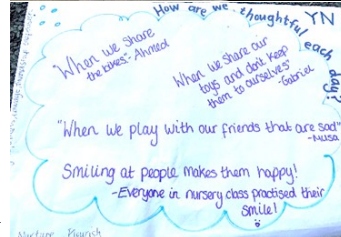 How are we thoughtful each day?
YN
"When we share
the bikes"- Ahmed
When we share our
toys and don't keep
them to ourselves"
-Gabriel
"When we play with our friends that are sad"
-Musa
Smiling at people makes them happy!
-Everyone in nursery class practised their
smile!
Nurture Flourish